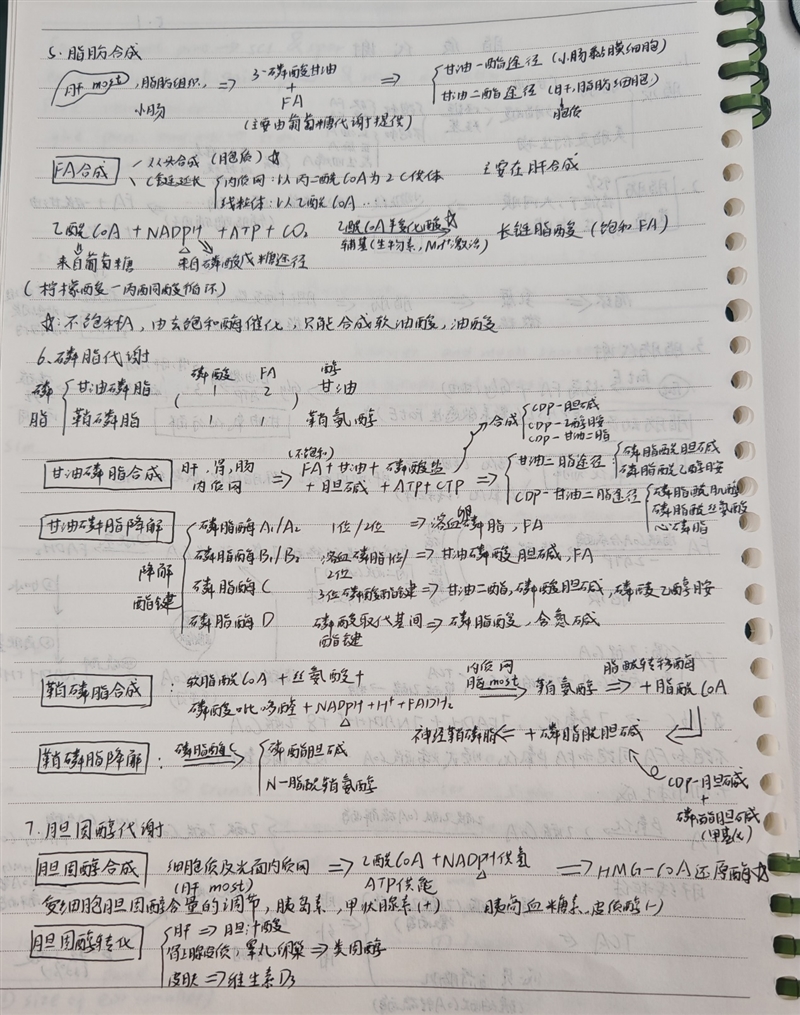 5. 脂肪合成
肝 most, 脂肪组织, 小肠 ⇒ 3-磷酸甘油 + FA ⇒ 甘油一酯途径 (小肠黏膜细胞)
甘油二酯途径 (肝, 脂肪细胞)
(主要由葡萄糖代谢提供)
胞液
FA合成 从头合成 (胞液) ☆ 主要在肝合成
C链延长 内质网: 以丙二酰CoA为2C供体
线粒体: 以乙酰CoA ...
乙酰CoA + NADPH + ATP + CO₂ 乙酰CoA羧化酶 ☆ 长链脂酸 (饱和FA)
辅基(生物素, Mn²⁺激活)
来自葡萄糖 来自磷酸戊糖途径
(柠檬酸-丙酮酸循环)
☆: 不饱和FA, 由去饱和酶催化, 只能合成软油酸, 油酸
6. 磷脂代谢
磷酸 FA 醇
磷脂 甘油磷脂 ( 1 2 甘油
鞘磷脂 1 1 鞘氨醇
合成 CDP-胆碱
CDP-乙醇胺
CDP-甘油二脂
甘油磷脂合成 肝, 肾, 肠 内质网 ⇒ (不饱和) FA + 甘油 + 磷酸盐 + 胆碱 + ATP + CTP ⇒ 甘油二脂途径 磷脂酰胆碱
磷脂酰乙醇胺
CDP-甘油二脂途径 磷脂酰肌醇
磷脂酰丝氨酸
心磷脂
甘油磷脂降解 磷脂酶 A₁/A₂ 1位/2位 ⇒ 溶血磷脂, FA
降解酯键 磷脂酶 B₁/B₂ 溶血磷脂1位/2位 ⇒ 甘油磷酸胆碱, FA
磷脂酶 C 3位磷酸酯键 ⇒ 甘油二酯, 磷酸胆碱, 磷酸乙醇胺
磷脂酶 D 磷酸取代基间酯键 ⇒ 磷脂酸, 含氮碱
鞘磷脂合成 : 软脂酰CoA + 丝氨酸 + 内质网 脑most 鞘氨醇 脂酰转移酶 ⇒ + 脂酰CoA
磷酸吡哆醛 + NADPH + H⁺ + FADH₂
神经鞘磷脂 ⇐ + 磷脂酰胆碱
鞘磷脂降解 : 磷脂酶C 磷酸胆碱
N-脂酰鞘氨醇
CDP-胆碱
+
磷酸胆碱
(甲基化)
7. 胆固醇代谢
胆固醇合成 细胞质及光面内质网 ⇒ 乙酰CoA + NADPH供氢 ⇒ HMG-CoA还原酶 ☆
(肝 most) ATP供能
受细胞胆固醇含量的调节, 胰岛素, 甲状腺素(+) 胰高血糖素, 皮质醇(-)
胆固醇转化 肝 ⇒ 胆汁酸
肾上腺皮质, 睾丸, 卵巢 ⇒ 类固醇
皮肤 ⇒ 维生素D₃